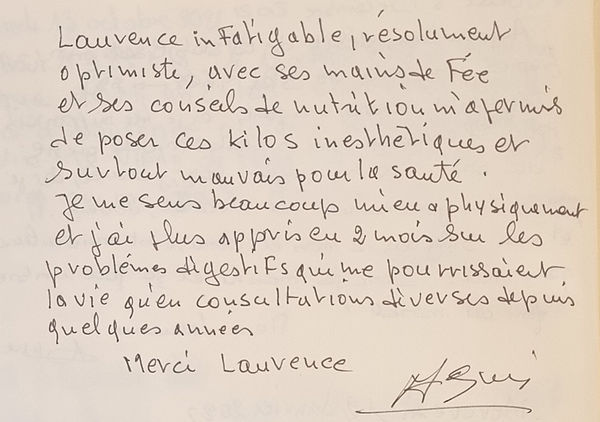 Laurence infatigable, résolument
optimiste, avec ses mains de Fée
et ses conseils de nutrition m'a permis
de poser ces kilos inesthétiques et
surtout mauvais pour la santé.
Je me sens beaucoup mieux physiquement
et j'ai plus appris en 2 mois sur les
problémes digestifs qui me pourrissaient
la vie qu'en consultations diverses depuis
quelques années
Merci Laurence